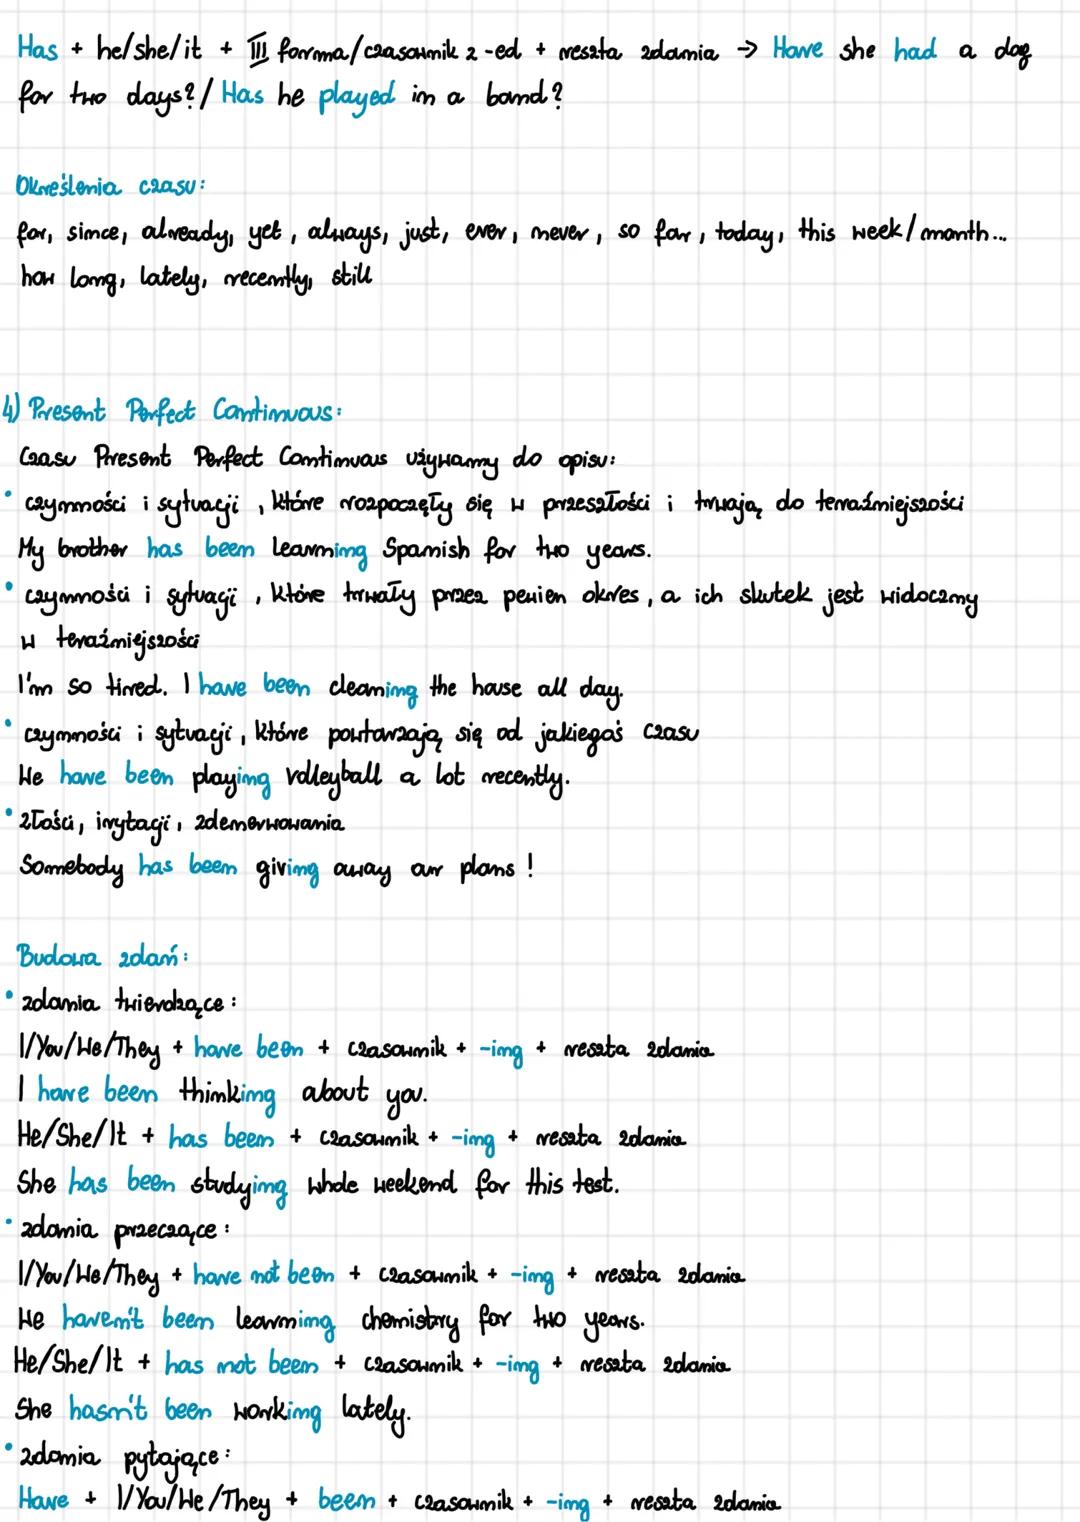 Has + he/she/it + III forma/czasownik z -ed + reszta zdania → Have she had a dog
for two days?/ Has he played in a band?
Określenia czasu:
for, since, already, yet, always, just, ever, never, so far, today, this week/month...
how long, lately, recently, still
4) Present Perfect Continuous:
Czasu Present Perfect Continuous używamy do opisu:
• czynności i sytuacji, które rozpoczęły się w przeszłości i trwają do teraźniejszości
My brother has been learning Spanish for two years.
• czynności i sytuacji, które trwały przez pewien okres, a ich skutek jest widoczny
w teraźniejszości
I'm so tired. I have been cleaning the house all day.
• czynności i sytuacji, które powtarzają się od jakiegoś czasu
We have been playing volleyball a lot recently.
• złości, irytacji, zdenerwowania
Somebody has been giving away our plans!
Budowa zdań:
• zdania twierdzące:
I/You/We/They + have been + czasownik + -ing + reszta zdania
I have been thinking about you.
He/She/It + has been + czasownik + -ing + reszta zdania
She has been studying whole weekend for this test.
• zdania przeczące:
I/You/We/They + have not been + czasownik + -ing + reszta zdania
We haven't been learning chemistry for two years.
He/She/It + has not been + czasownik + -ing + reszta zdania
She hasn't been working lately.
• zdania pytające:
Have + I/You/We/They + been + czasownik + -ing + reszta zdania